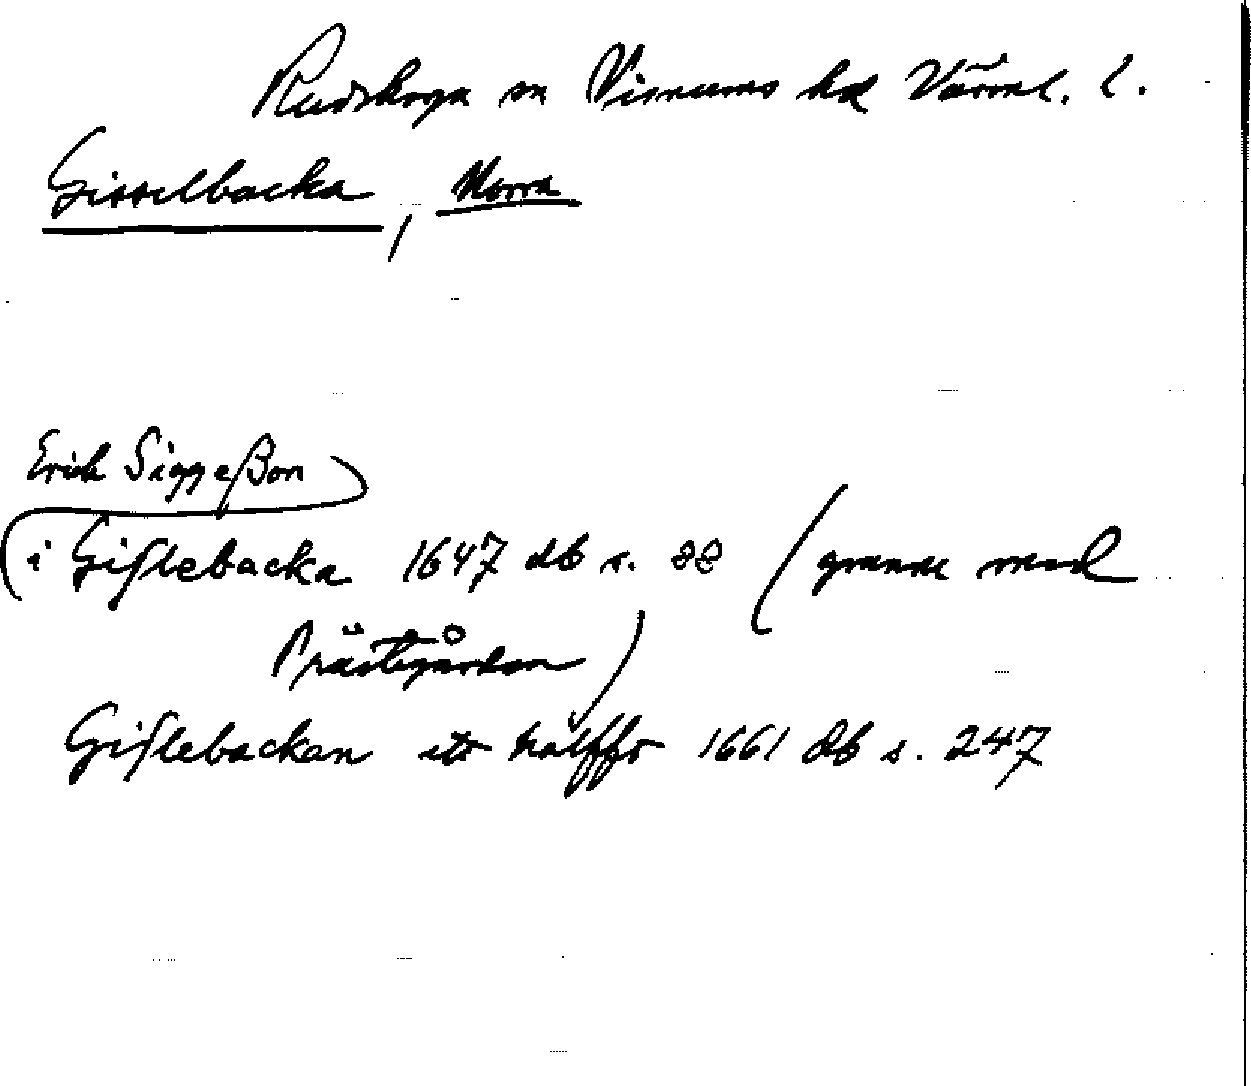 Rudskoga sn Visnums hd Värml. l.
Gisselbacka, Norra
Erich Siggeßon
(i Gislebacka 1647 db s. 88 (granne med
Prästegården)
Gislebackan ett hälfft 1661 db s. 247